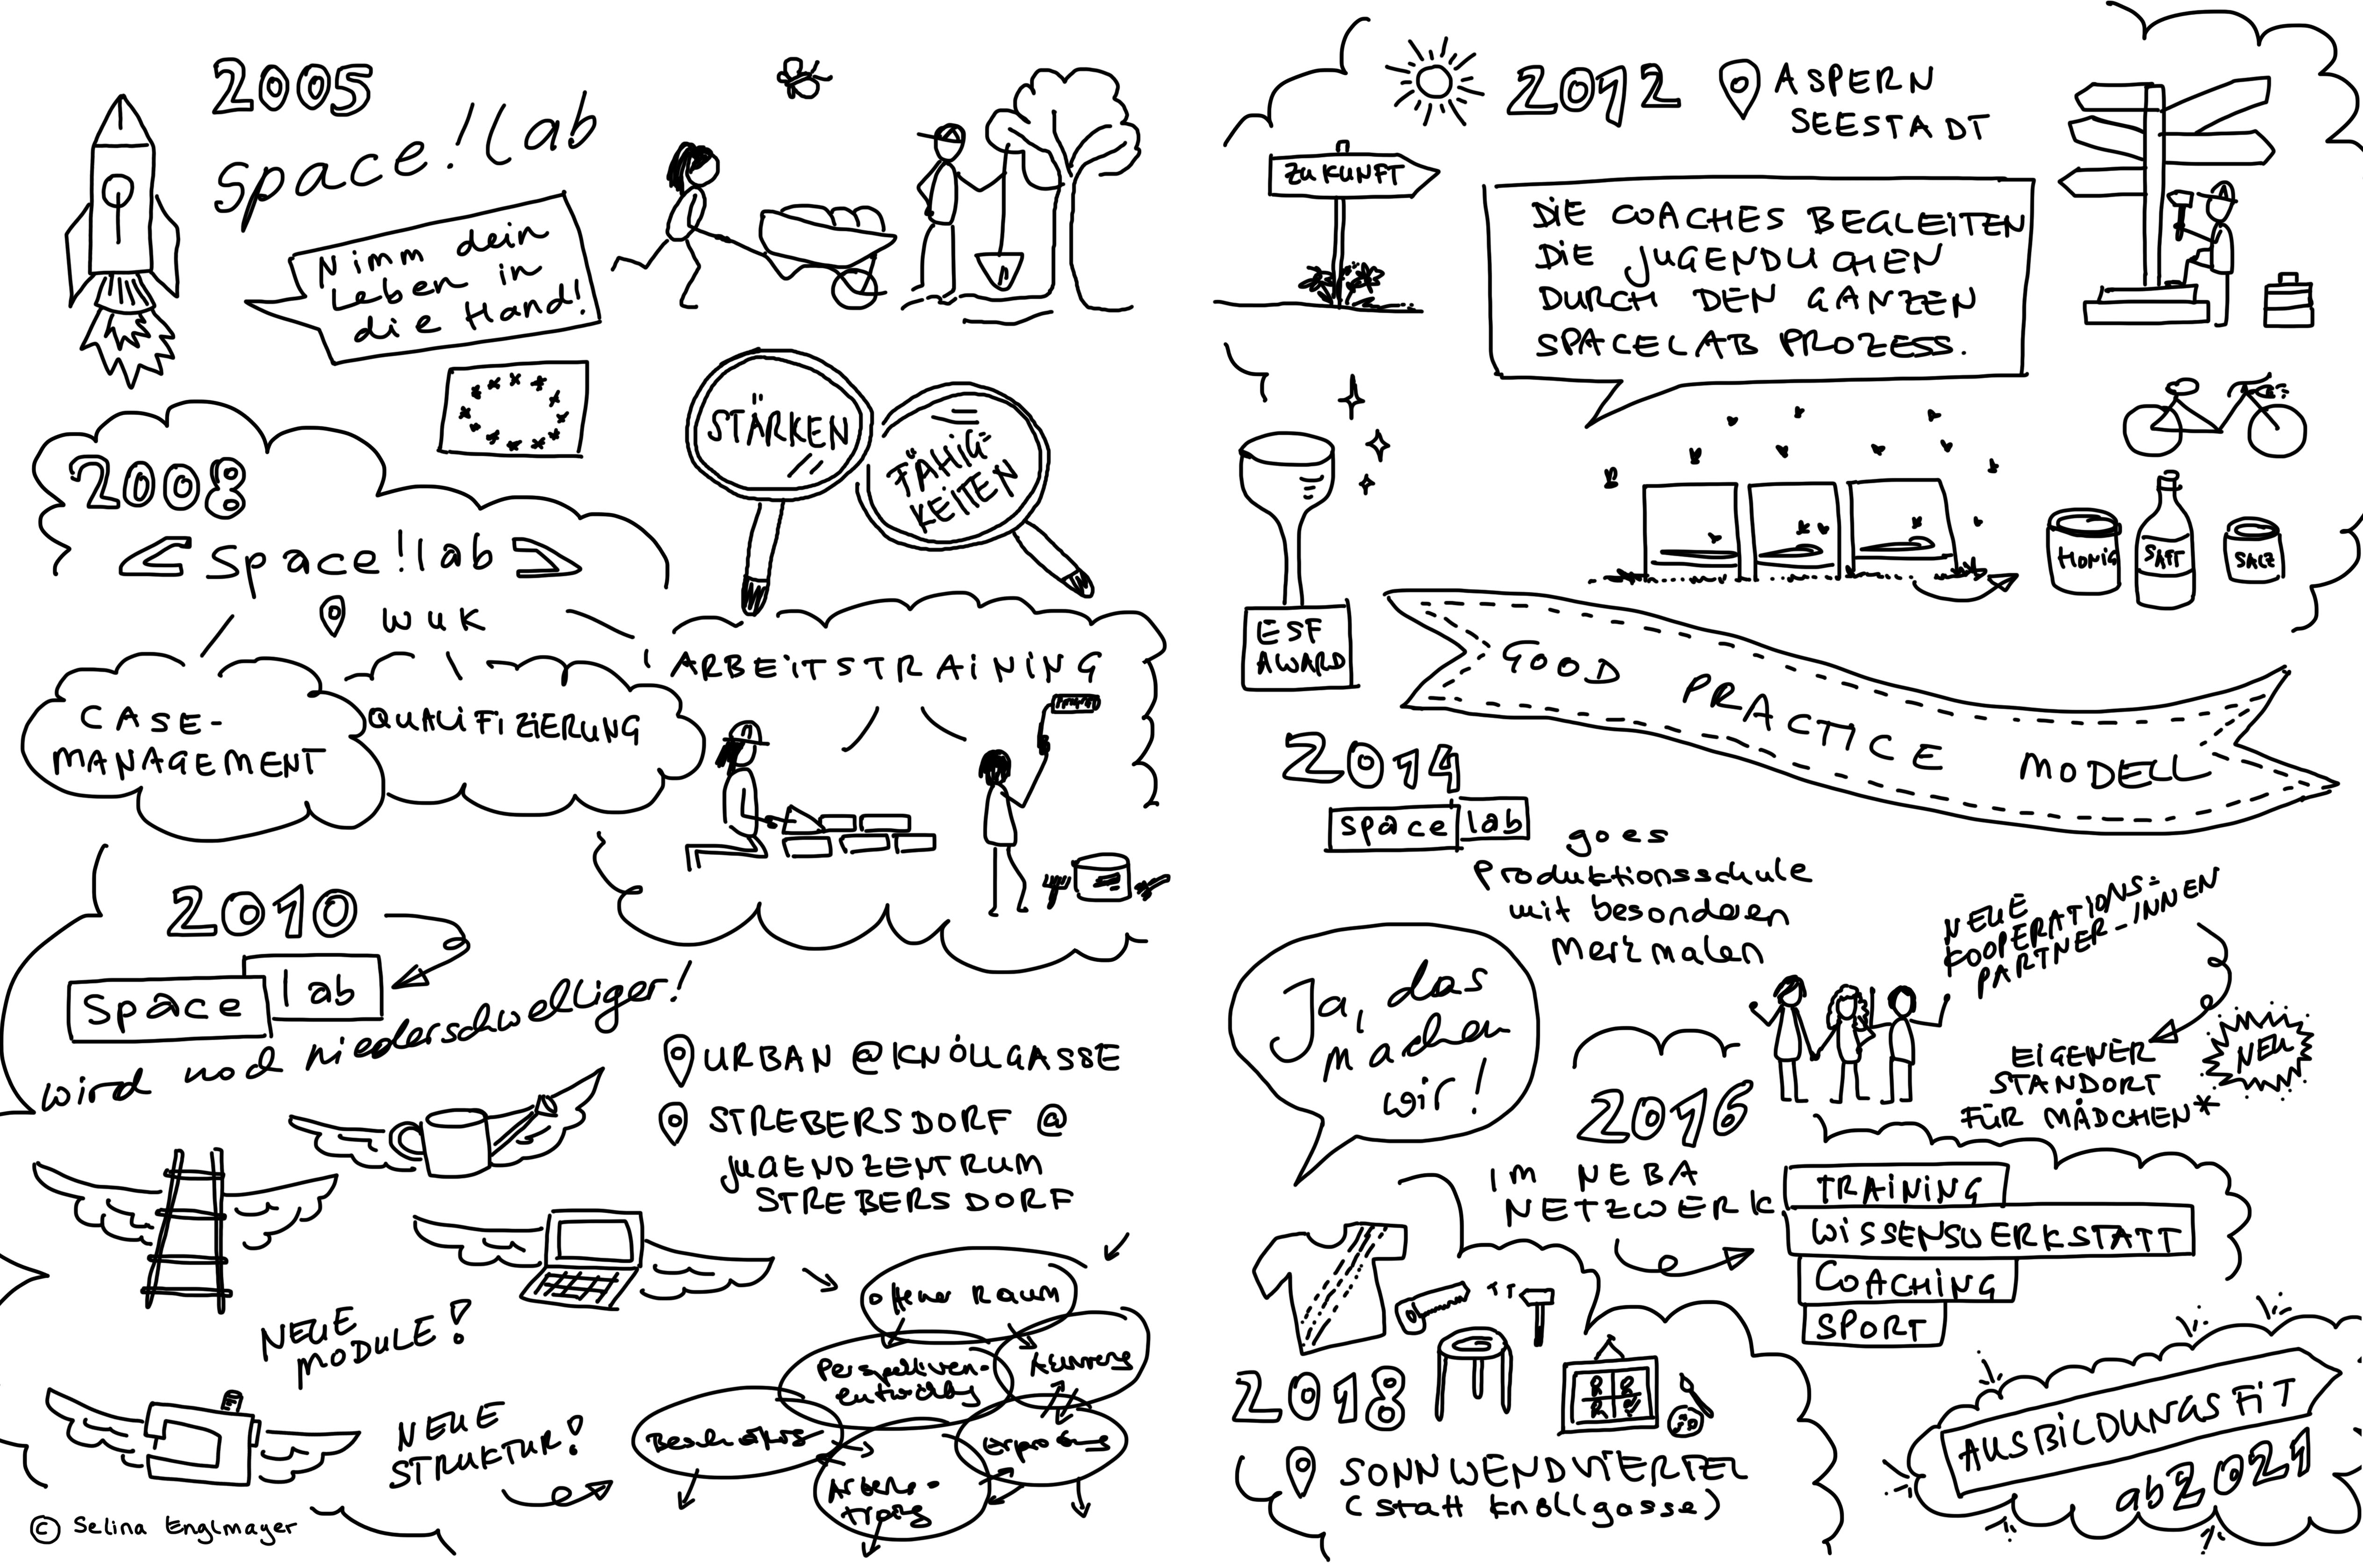 2005
space!lab
Nimm dein
Leben in
die Hand!
STÄRKEN
FÄHIG-
KEITEN
2008
space!lab
WUK
CASE-
MANAGEMENT
QUALIFIZIERUNG
ARBEITSTRAINING
2010
space lab
wird noch niederschwelliger!
URBAN @KNÖLLGASSE
STREBERSDORF @
JUGENDZENTRUM
STREBERSDORF
NEUE
MODULE!
NEUE
STRUKTUR!
offener Raum
Perspektiven-
entwicklung
Erprobung
Arbeits-
training
© Selina Englmayer
ZUKUNFT
2012
ASPERN
SEESTADT
DIE COACHES BEGLEITEN
DIE JUGENDLICHEN
DURCH DEN GANZEN
SPACELAB PROZESS.
HONIG
SAFT
SALZ
ESF
AWARD
GOOD PRACTICE MODELL
2014
space lab
goes
Produktionsschule
mit besonderen
Merkmalen
Ja, das
machen
wir!
NEUE
KOOPERATIONS-
PARTNER_INNEN
EIGENER
STANDORT
FÜR MÄDCHEN*
NEU
2016
IM NEBA
NETZWERK
TRAINING
WISSENSWERKSTATT
COACHING
SPORT
2018
SONNWENDVIERTEL
(statt Knöllgasse)
AUSBILDUNGSFIT
ab 2021